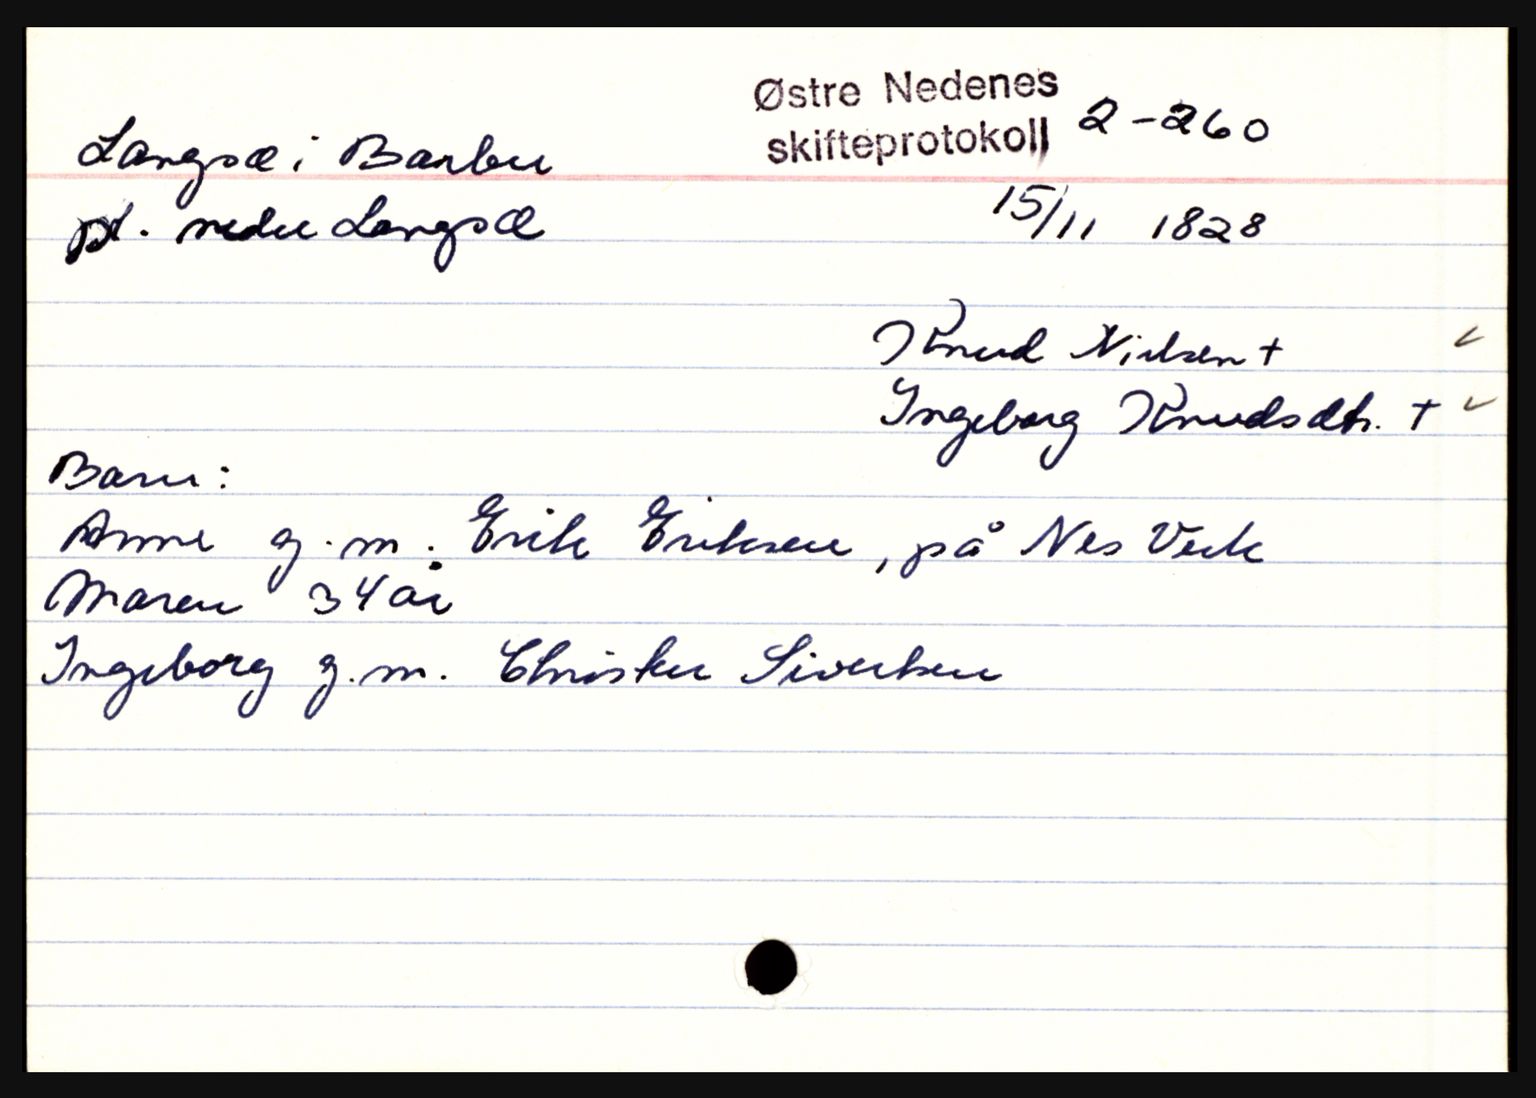 Østre Nedenes
skifteprotokoll 2-260
Langsæ i Barbu
pl. nedre Langsæ
15/11 1828
Knud Nielsen +
Ingeborg Knudsdtr. +
Barn:
Anne g.m. Erik Eriksen, på Nes Verk
Maren 34 år
Ingeborg g.m. Christen Sivertsen